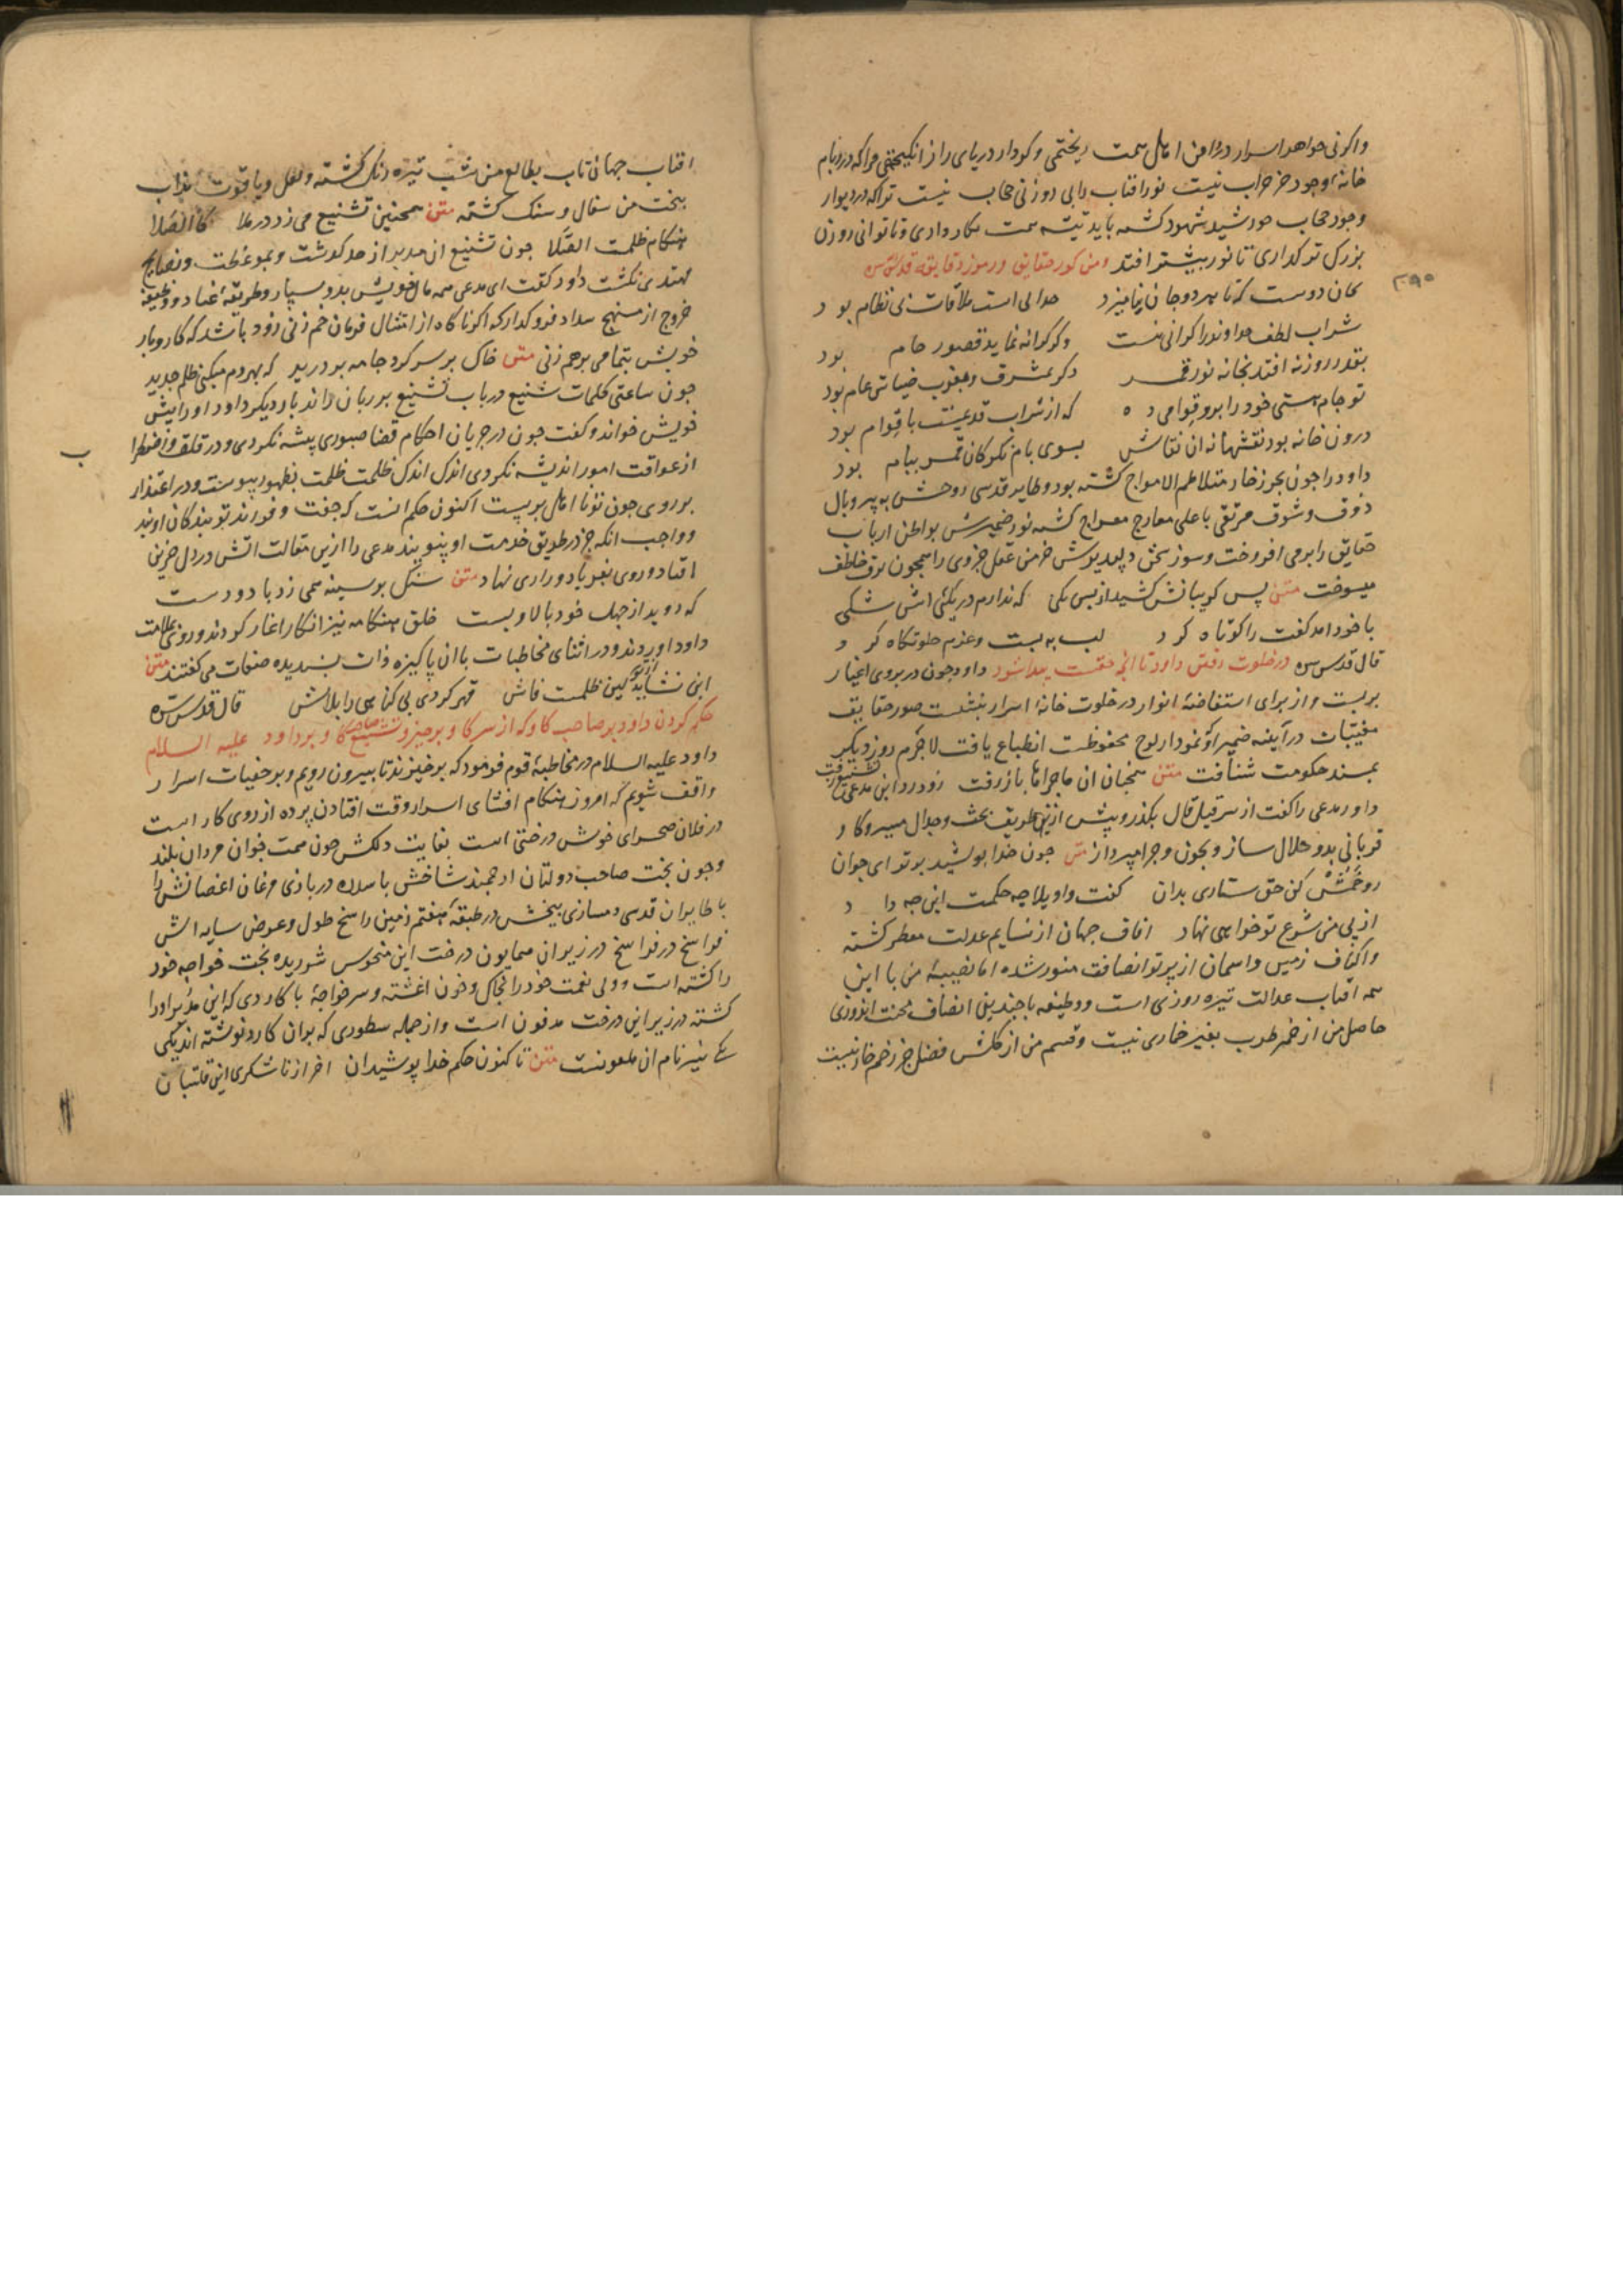 واکر نی جواهر اسرار در دامن امال سمت ریختمی و کرد از دریای راز انکیختمی مراکه در و بام
خانهٔ وجود جز خراب نیست نور افتاب را بی روزنی حجاب نیست تراکه در و دیوار
وجود حجاب خورشید شهود کشته باید تیشه سمت بکار داری و تا توانی روزن
بزرک تر کذاری تا نور بیشتر افتد ومن کنوز حقایق ورموز دقایقه قدس سره
۲۹۰
کمان دوست که با هر دو جان نیامیزد جدا لی است ملاقات بی نظام بود
شراب لطف خداوند را کرانی نیست وکر کرانه نماید قصور جام بود
بقدر روزنه افتد بخانه نور قمر وکر بمشرق و مغرب ضیاش عام بود
تو جام هستی خود را برو قوامی ده که از شراب قدیمیت با قوام بود
درون خانه بود نقشها نه ان نقاش بسوی بام نکر کان قمر ببام بود
داود را جون بحر زخار متلاطم الامواج کشته بود و طایر قدسی روحش به پر و بال
ذوق و شوق مرتقی باعلی معارج معراج کشته نور ضمیرش بواطن ارباب
حقایق را برمی افروخت وسوز سخن دلپذیرش خرمن عقل جزوی را همجون برق خاطف
میسوخت متن پس کریبانش کشید از پس یکی که ندارم در یکیئ اش شکی
با خود امد کفت را کوتاه کرد لب به بست وعزم خلوتکاه کرد
قال قدس سره در خلوت رفتن داود تا انچه حقست پیدا شود داود جون در بروی اغیار
بر بست واز برای استفاضهٔ انوار در خلوت خانهٔ اسرار بنشست صور حقایق
مغیبات در آینه ضمیر او نمودار لوح محفوظست انطباع یافت لاجرم روز دیکر
بمسند حکومت شتافت متن همچنان ان ماجراها باز رفت زود زد ان مدعی تشنیع رفت
داود مدعی را کفت از سر قیل و قال بکذر و بیش ازین طریق بحث و جدال مسپر و کاو
قربانی بدو حلال ساز و بجون و جرا مپرداز متن جون خدا پوشید بر تو ای جوان
رو خمش کن حق ستاری بدان کفت واویلا چه حکمست این چه داد
از پی من شرع نو خواهی نهاد افاق جهان از نسایم عدلت معطر کشته
واکناف زمین واسمان از پرتو انصافت منور شده اما نصیبهٔ من با این
همه افتاب عدالت تیره روزی است و وظیفه با جندین انصاف محنت اندوزی
حاصل من از خمر طرب بغیر خماری نیست وقسم من از کلشن فضل جز زخم خار نیست
افتاب جهان تاب بطالع من شب تیره رنک کشته ولعل ویاقوت مذاب
ببخت من سفال و سنک کشته متن همچنین تشنیع می زد در ملا کالصلا
هنکام ظلمست الصلا جون تشنیع ان مدبر از حد کذشت و بموعظت و نصایح
مهتدی نکشت داود کفت ای مدعی همه مال خویش بدو سپار و طریقهٔ عناد و وظیفهٔ
خروج از منهج سداد فرو کذار که اکر ناکاه از امتثال فرمان دم زنی زود باشد که کار و بار
خویش بتمامی برهم زنی متن خاک بر سر کرد جامه بر درید که بهردم میکنی ظلم جدید
جون ساعتی کلمات شنیع در باب تشنیع بر زبان راند بار دیکر داود او را پیش
خویش خواند و کفت جون در جریان احکام قضا صبوری پیشه نکردی و در قلق و اضطرا
ب
از عواقب امور اندیشه نکردی اندک اندک ظلمت ظلمت بظهور پیوست و در اعتذار
بر روی جون تو نا اهل بر بست اکنون حکم انست که جفت و فرزند تو بندکان اویند
و واجب انکه جز در طریق خدمت او نپویند مدعی را ازین مقالت اتش در دل حزین
افتاد و روی بفریاد و زاری نهاد متن سنک بر سینه همی زد با دو دست
که دوید از جهل خود بالا و پست خلق هنکامه نیز انکار اغاز کردند و روی بملامت
داود اوردند و در اثنای مخاطبات با ان پاکیزه ذات پسندیده صفات می کفتند متن
این نشاید از تو کین ظلمست فاش قهر کردی بی کناهی را بلاش قال قدس سره
حکم کردن داود بر صاحب کاو که از سر کاو برخیز و تشنیع صاحب کاو بر داود علیه السلام
داود علیه السلام در مخاطبهٔ قوم فرمود که برخیزند تا بیرون رویم و بر خفیات اسرار
واقف شویم که امروز هنکام افشای اسرار و وقت افتادن پرده از روی کار است
در فلان صحرای خوش درختی است بغایت دلکش جون همت جوان مردان بلند
وجون بخت صاحب دولتان ارجمند شاخش با سدره در بازی مرغان اغصانش را
با طایران قدسی دمسازی بیخش در طبقهٔ هفتم زمین راسخ طول و عرض سایه اش
فراسخ در فراسخ در زیر ان همایون درخت این منحوس شوریده بخت خواجه خود
را کشته است و ولی نعمت خود را بخاک و خون اغشته و سر خواجه با کاردی که این مدبر او را
کشته در زیر این درخت مدفون است و از جمله سطوری که بران کارد نوشته اند یکی
نیز نام ان ملعونست متن تا کنون حکم خدا پوشید ان اخر از ناشکری این قلتبان